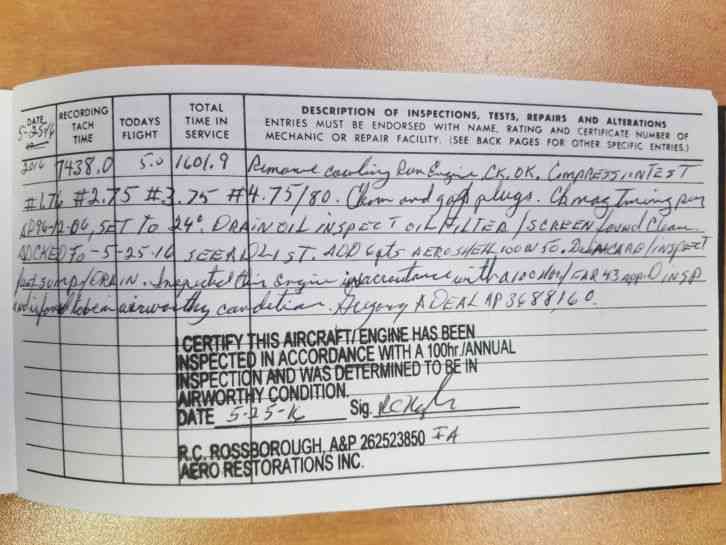 DATE RECORDING TACH TIME TODAYS FLIGHT TOTAL TIME IN SERVICE DESCRIPTION OF INSPECTIONS, TESTS, REPAIRS AND ALTERATIONS
ENTRIES MUST BE ENDORSED WITH NAME, RATING AND CERTIFICATE NUMBER OF
MECHANIC OR REPAIR FACILITY. (SEE BACK PAGES FOR OTHER SPECIFIC ENTRIES.)
5-25-16
2016 7438.0 5.0 1601.9 Remove cowling Run Engine, CK. OK. COMPRESSION TEST
#1.76 #2.75 #3.75 #4.75/80. Clean and gap plugs. Ck mag Timing per
SET TO 24°. DRAIN OIL INSPECT OIL FILTER/SCREEN found Clean
TO 5-25-16 SEE AD LIST. ADD 6qts AEROSHELL 100W50. INSPECT
SUMP/DRAIN. Inspected this Engine in accordance with a 100 Hour/FAR 43 app D INSP
and is found to be in airworthy condition. Gregory A DEAL AP
I CERTIFY THIS AIRCRAFT/ENGINE HAS BEEN
INSPECTED IN ACCORDANCE WITH A 100hr./ANNUAL
INSPECTION AND WAS DETERMINED TO BE IN
AIRWORTHY CONDITION.
DATE 5-25-16 Sig.
R.C. ROSSBOROUGH, A&P 262523850 IA
AERO RESTORATIONS INC.